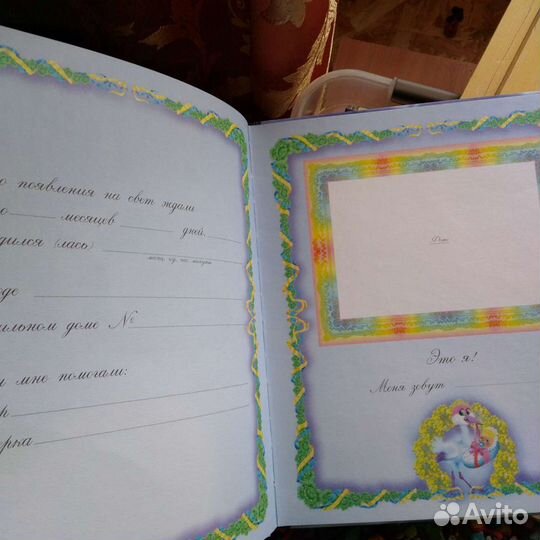 о появления на свет ждали
е ____ месяцев ____ дней.
дился (лась)
месяц, год, час, минуты
оде
ильном доме №
и мне помогали:
р
рка
Фото
Это я!
Меня зовут
Avito